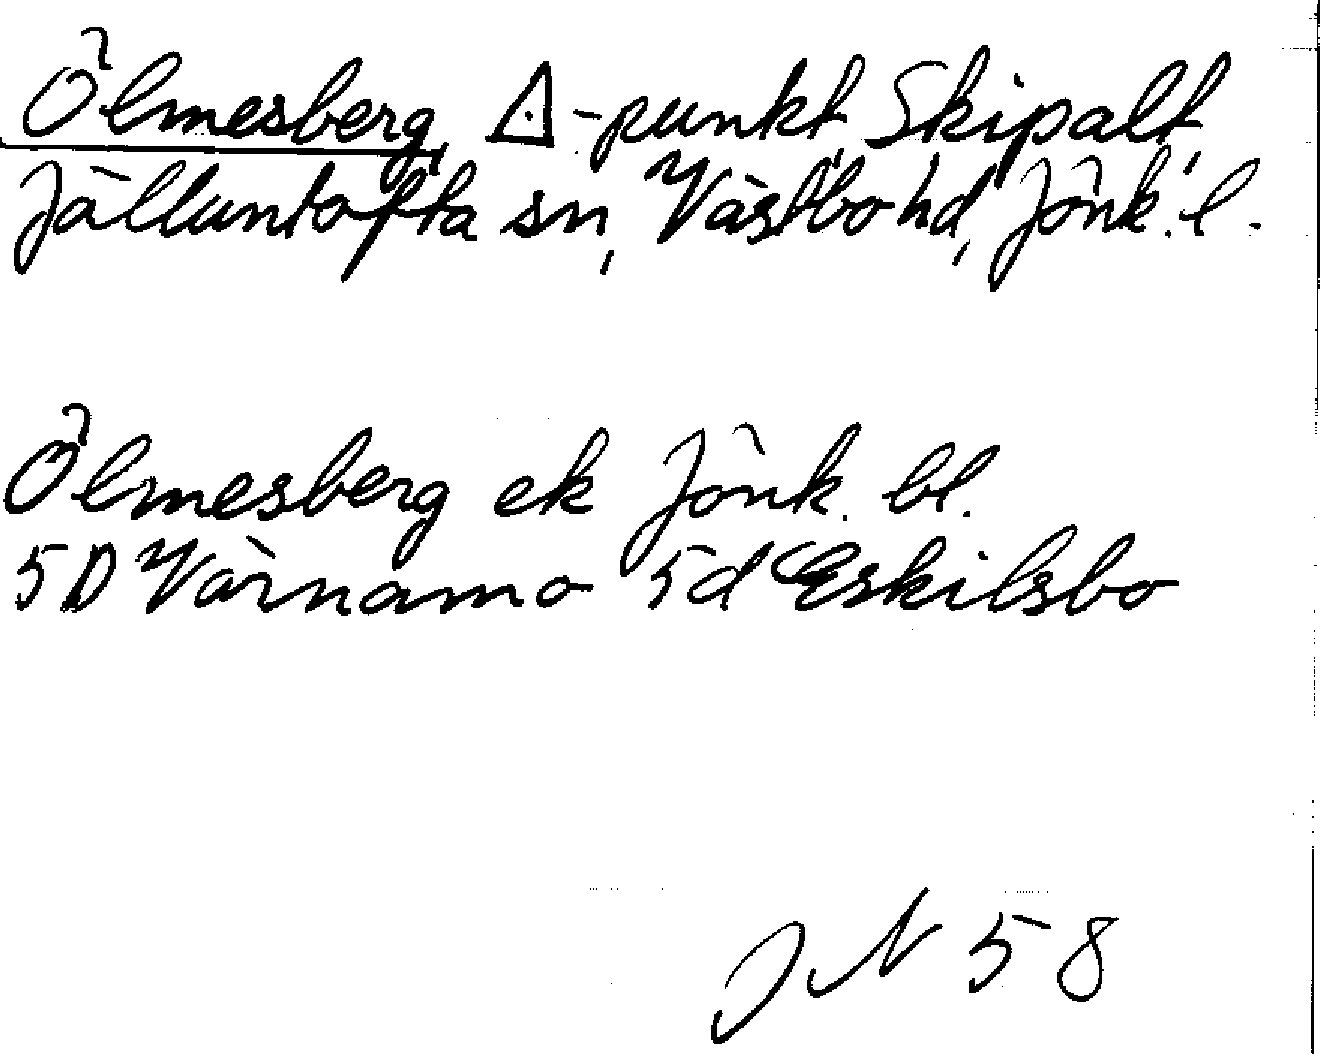 Ölmesberg, △-punkt, Skipalt,
Jälluntofta sn, Västbo hd, Jönk. l.
Ölmesberg ek Jönk. bl.
5D Värnamo 5d Eskilsbo
JN 58